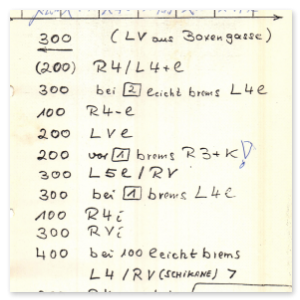 300 (LV aus Boxengasse)
(200) R4/L4+e
300 bei 2 leicht brems L4e
100 R4-e
200 LVe
200 vor 1 brems R3+K !
300 L5e/RV
300 bei 1 brems L4e
100 R4i
300 RVi
400 bei 100 leicht brems
L4/RV (SCHIKANE) 7